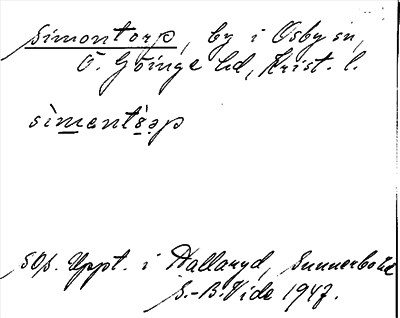 Simontorp, by i Osby sn,
Ö. Göinge hd, Krist. l.
sìmentɔ̀rp
SOs. Uppt. i Hallaryd, Sunnerbo hd
S.-B. Vide 1947.